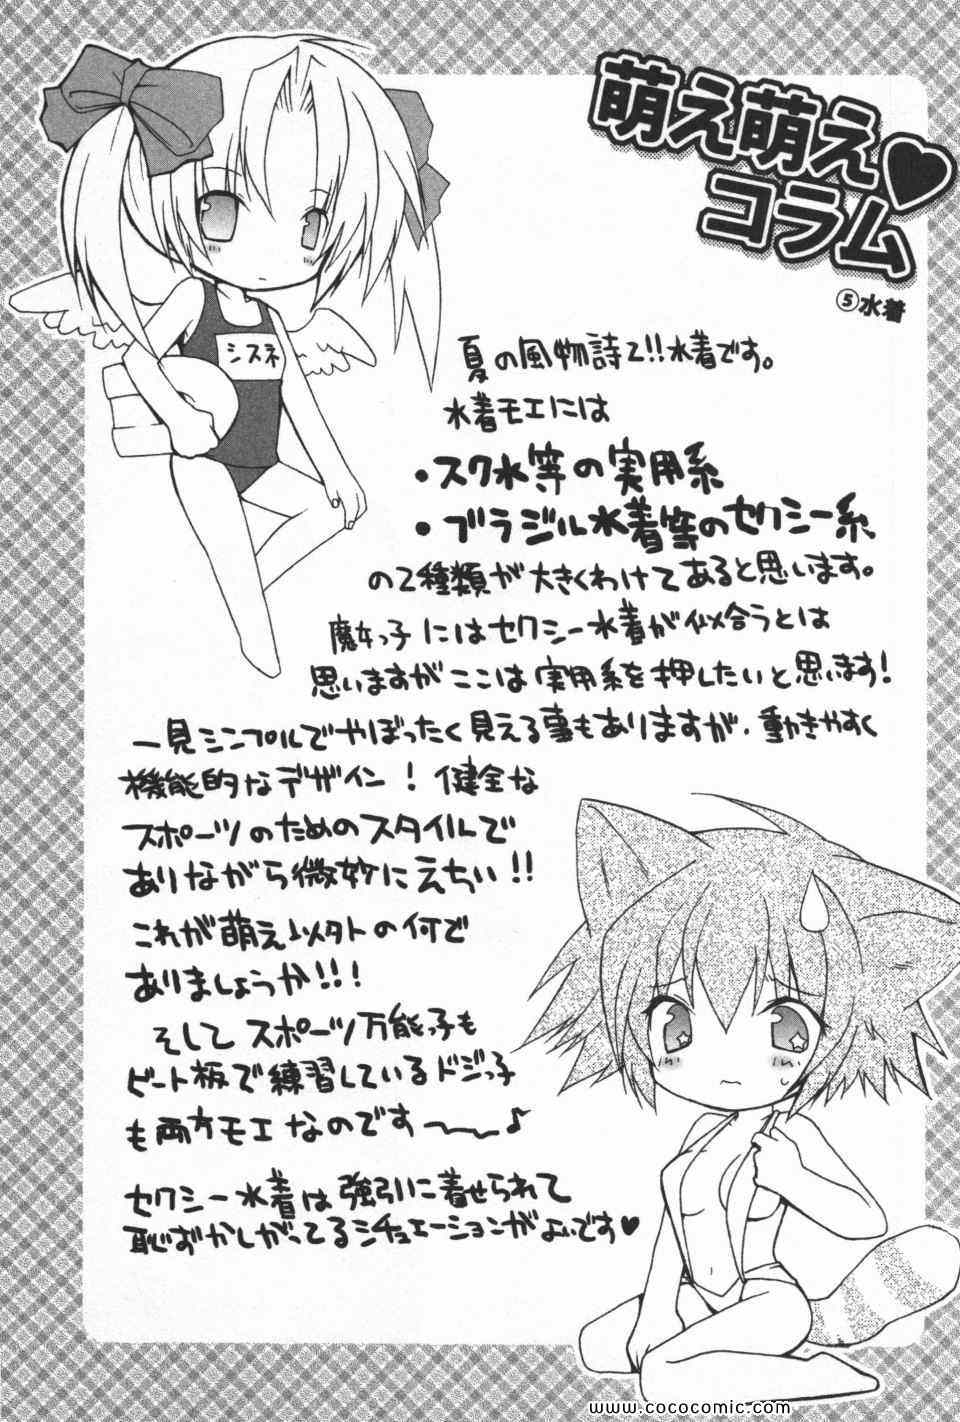 萌え萌え♥
コラム
⑤水着
シスネ
夏の風物詩て!!水着です。
水着モエには
・スク水等の実用系
・ブラジル水着等のセクシー系
の2種類が大きくわけてあると思います。
魔女っ子にはセクシー水着が似合うとは
思いますがここは実用系を押したいと思います!
一見シンプルでやぼったく見える事もありますが、動きやすく
機能的なデザイン!健全な
スポーツのためのスタイルで
ありながら微妙にえちい!!
これが萌え以外の何で
ありましょうか!!!
そして スポーツ万能っ子も
ビート板で練習しているドジっ子
も両方モエなのです〜〜♪
セクシー水着は強引に着せられて
恥ずかしがってるシチュエーションがよいです♥
www.cococomic.com